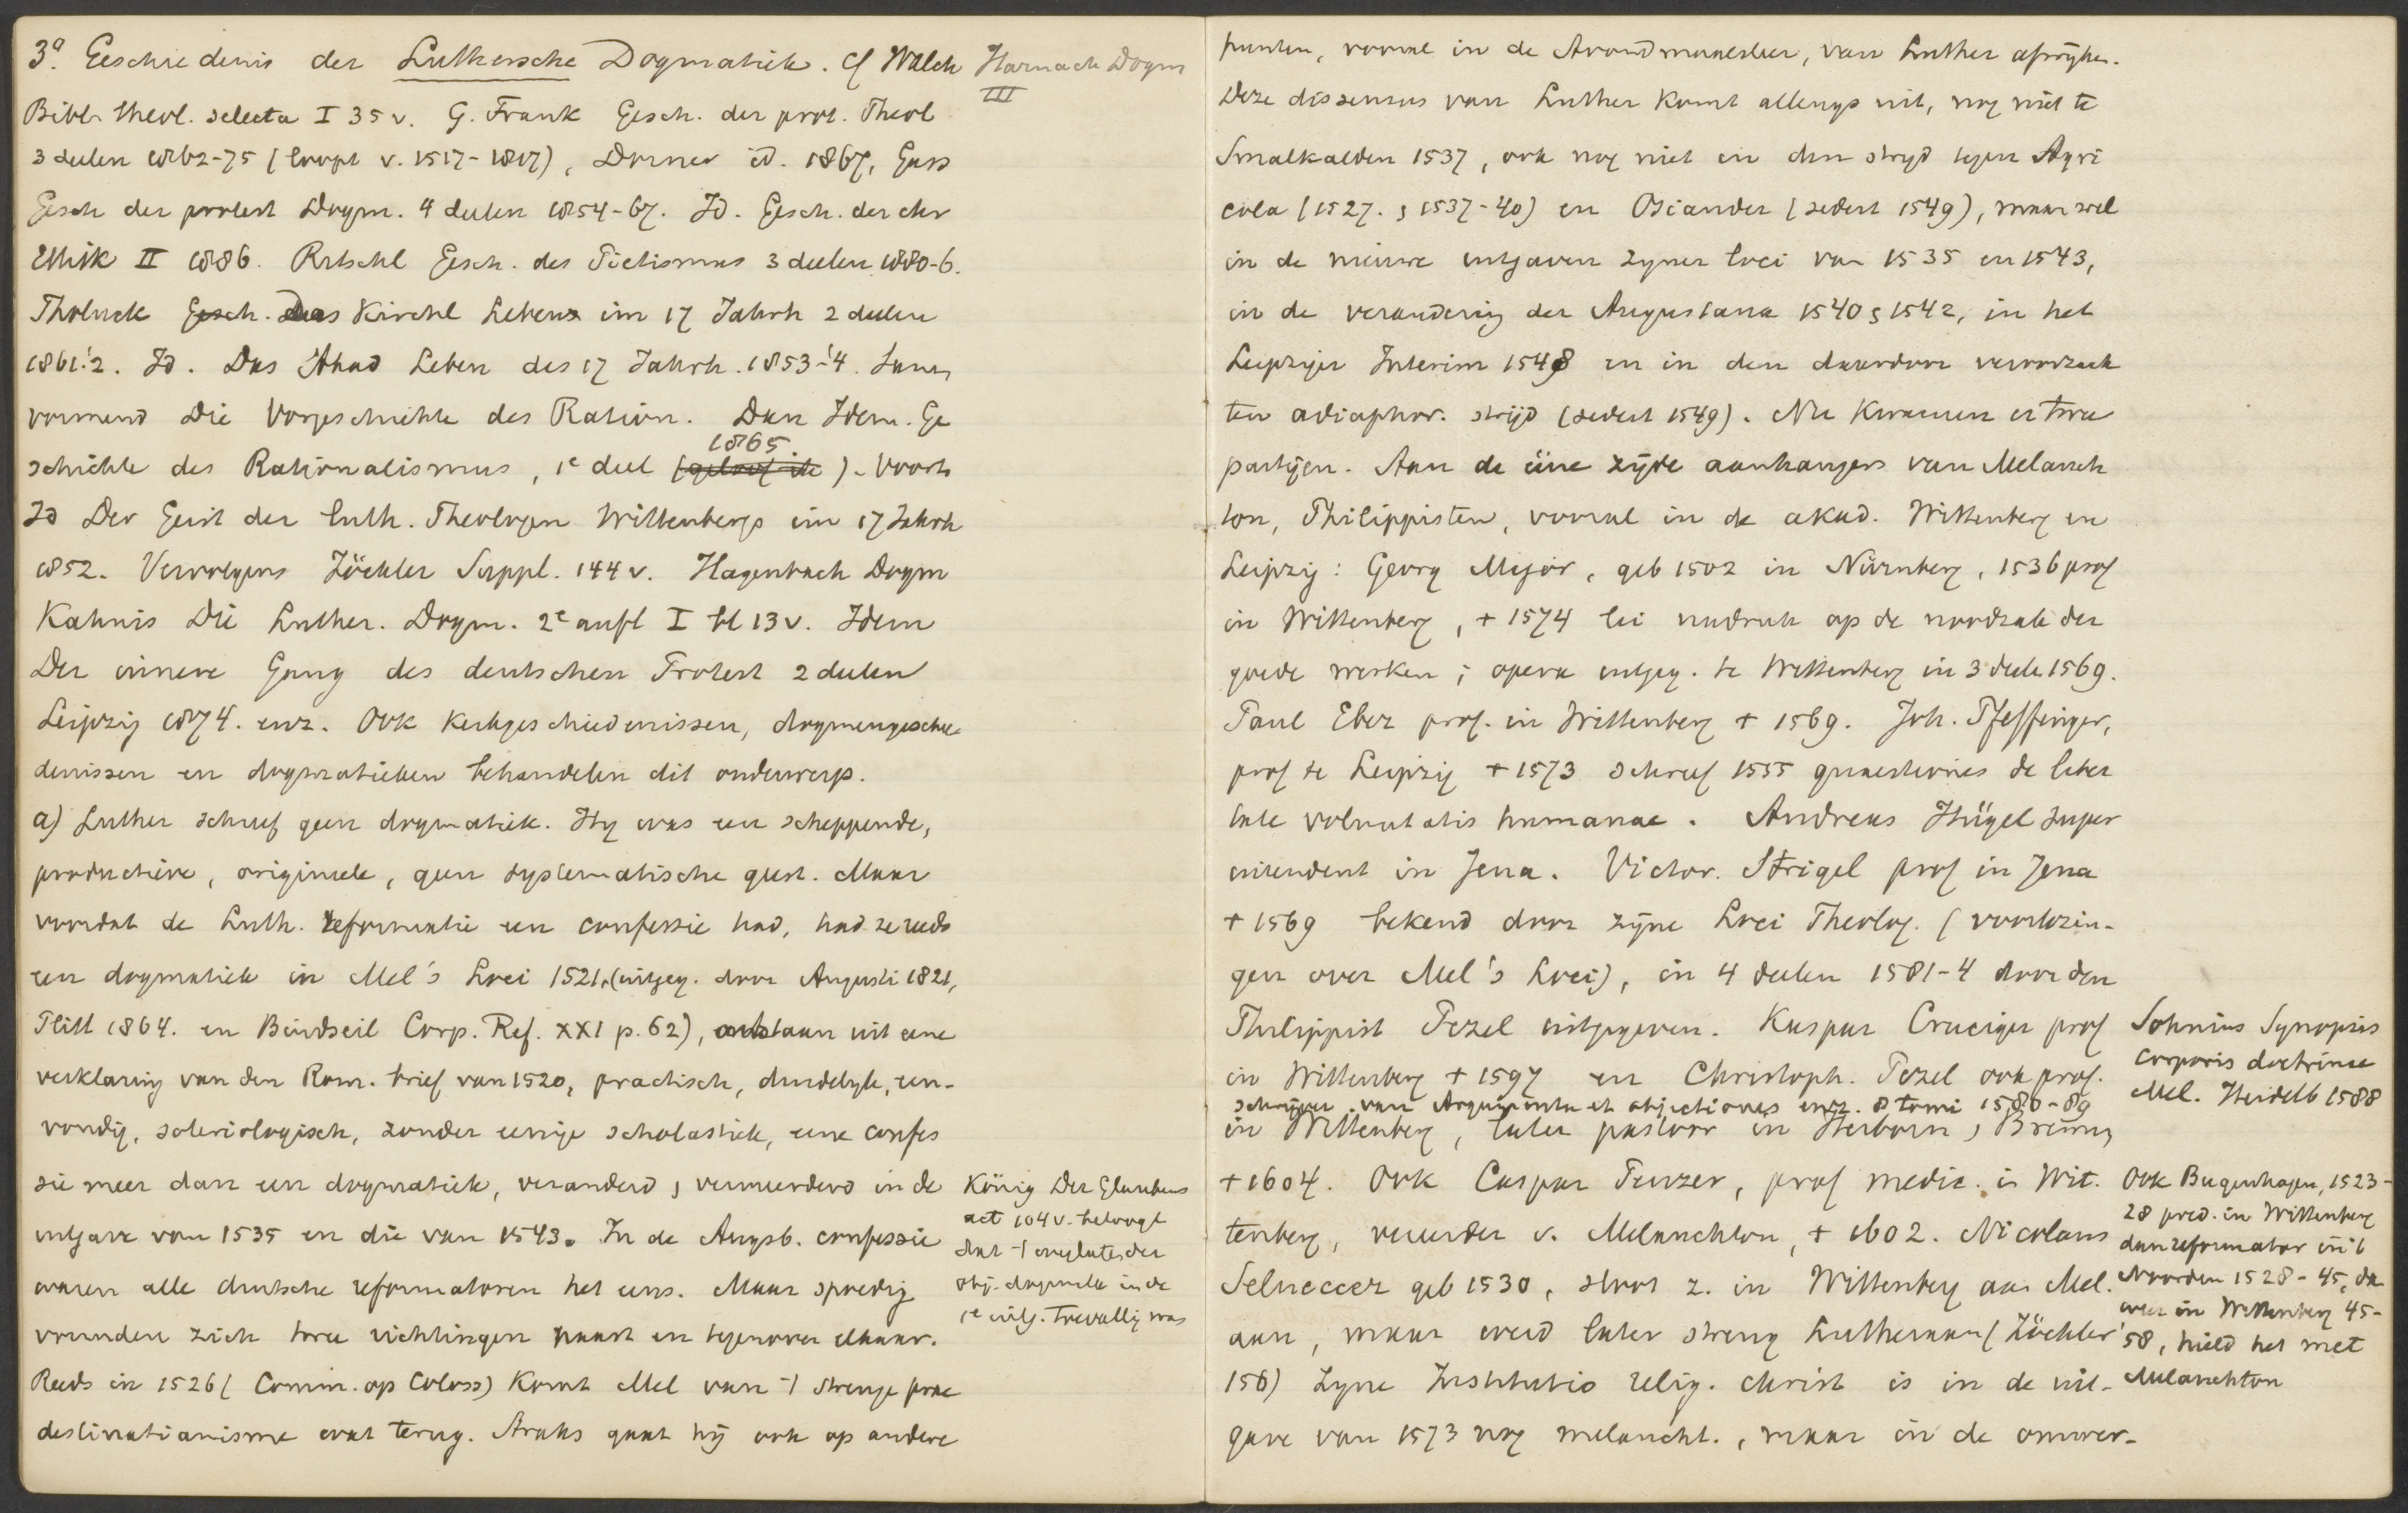 3a. Geschiedenis der Luthersche Dogmatiek. cf Walch Harnack Dogm
III
Bibl. theol. selecta I 35 v. G. Frank Gesch. der prot. Theol
3 deelen 1862-75 (loopt v. 1517-1817), Dorner id. 1867, Gass
Gesch der protest Dogm. 4 deelen 1854-67. Id. Gesch. der chr
Ethik II 1886. Ritschl Gesch. des Pietismus 3 deelen 1880-6.
Tholuck Gesch. Das Kirchl Lebens im 17 Jahrh 2 deelen
1861-'2. Id. Das Akad Leben des 17 Jahrh. 1853-'4. Samen
vormend Die Vorgeschichte des Ration. Dan Idem. Ge
schichte des Rationalismus, 1e deel (geloof ik) 1865. Voorts
Id Der Geist der luth. Theologen Wittenbergs im 17 Jahrh
1852. Vervolgens Zöckler Suppl. 144 v. Hagenbach Dogm
Kahnis Die Luther. Dogm. 2e aufl I bl 13 v. Idem
Der innere Gang des deutschen Protest 2 deelen
Leipzig 1874. enz. Ook kerkgeschiedenissen, dogmengeschie-
denissen en dogmatieken behandelen dit onderwerp.
a) Luther schreef geen dogmatiek. Hij was een scheppende,
productieve, origineele, geen systematische geest. Maar
voordat de Luth. reformatie een confessie had, had ze reeds
een dogmatiek in Mel's Loci 1521, (uitgeg. door Augusti 1821,
Plitt 1864. en Bindseil Corp. Ref. XXI p. 62), ontstaan uit eene
verklaring van den Rom. brief van 1520, practisch, duidelyk, een-
voudig, soteriologisch, zonder eenige scholastiek, eene confes
sie meer dan een dogmatiek, veranderd & vermeerderd in de
uitgave van 1535 en die van 1543. In de Augsb. confessie
waren alle duitsche reformatoren het eens. Maar spoedig
vormden zich twee richtingen naast en tegenover elkaar.
Reeds in 1526 (Comm. op Coloss) komt Mel van 't strenge prae
destinatianisme wat terug. Straks gaat hij ook op andere
König Der Glaubens
act 104 v. betoogt
dat 't weglaten der
obj. dogmata in de
1e uitg. toevallig was
punten, vooral in de Avondmaalsleer, van Luther afwijken.
Deze dissensus van Luther komt allengs uit, nog niet te
Smalkalden 1537, ook nog niet in den stryd tegen Agri
cola (1527. & 1537-40) en Osiander (sedert 1549), maar wel
in de nieuwe uitgaven zyner loci van 1535 en 1543,
in de verandering der Augustana 1540 & 1542, in het
Leipziger Interim 1548 en in den daardoor veroorzaak
ten adiaphor. strijd (sedert 1549). Nu kwamen er twee
partijen. Aan de eene zijde aanhangers van Melanch
ton, Philippisten, vooral in de akad. Wittenberg en
Leipzig: Georg Major, geb 1502 in Nürnberg, 1536 prof
in Wittenberg, + 1574 lei nadruk op de noodzak. der
goede werken; opera uitgeg. te Wittenberg in 3 deele 1569.
Paul Eber prof. in Wittenberg + 1569. Joh. Pfeffinger,
prof te Leipzig + 1573 schreef 1555 quaestiones de liber
tate voluntatis humanae. Andreas Hügel super
intendent in Jena. Victor. Strigel prof in Jena
+ 1569 bekend door zijne Loci Theolog. (voorlezin-
gen over Mel's Loci), in 4 deelen 1581-4 door den
Philippist Pezel uitgegeven. Kaspar Cruciger prof
in Wittenberg + 1597 en Christoph. Pezel ook prof.
schrijver van Argumenta et objectiones enz. 8 tomi 1580-89
in Wittenberg, later pastoor in Herborn & Bremen
+ 1604. Ook Caspar Peuzer, prof medic. in Wit-
tenberg, verwer v. Melanchton, + 1602. Nicolaus
Selneccer geb 1530, sloot z. in Wittenberg aan Mel.
aan, maar werd later streng Lutheraan (Zöckler
156) Zyne Institutio relig. christ is in de uit-
gave van 1573 nog melancht., maar in de omwer-
Sohnius Synopsis
corporis doctrinae
Mel. Heidelb 1588
Ook Bugenhagen, 1523-
28 pred. in Wittenberg
dan reformator in 't
Noorden 1528-45, da
weer in Wittenberg 45-
58, hield het met
Melanchton